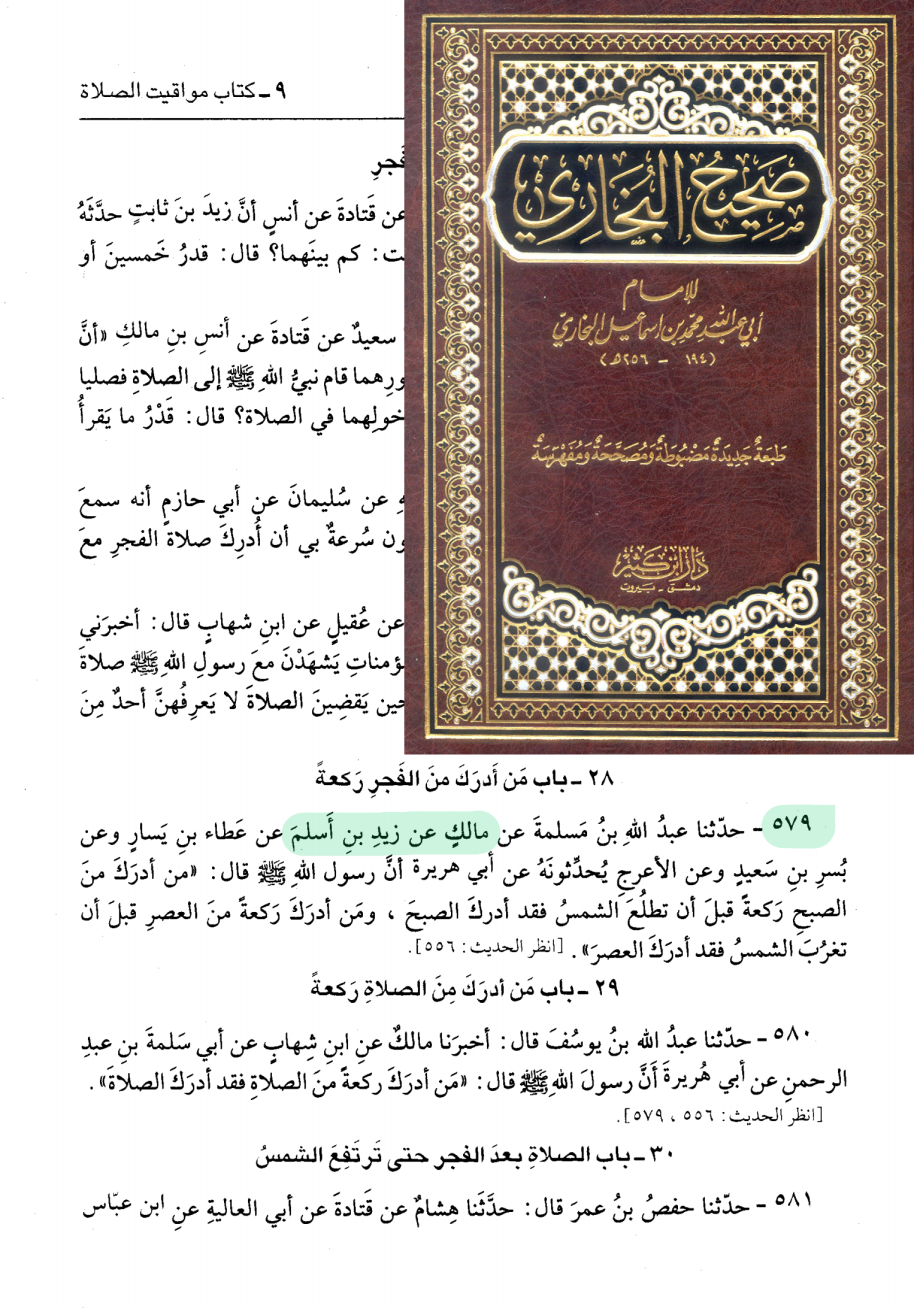 ٩ - كتاب مواقيت الصلاة
صَحِيحُ البُخَارِي
للإمام
أبي عبد الله محمد بن إسماعيل البخاري
(١٩٤ - ٢٥٦هـ)
طَبعَةٌ جَدِيدَةٌ مَضبُوطَةٌ وَمُصَحَّحَةٌ وَمُفَهْرَسَةٌ
دَار ابن كَثير
دمشق - بيروت
عن قَتادةَ عن أنسٍ أنَّ زيدَ بنَ ثابتٍ حدَّثَهُ
كم بينَهما؟ قال: قدرُ خَمسينَ أو
سعيدٌ عن قَتادةَ عن أنسِ بنِ مالكِ «أنَّ
قام نبيُّ اللهِ ﷺ إلى الصلاةِ فصليا
في الصلاة؟ قال: قَدْرُ ما يَقرأُ
عن سُليمانَ عن أبي حازمٍ أنه سمعَ
سُرعةٌ بي أن أُدرِكَ صلاةَ الفجرِ معَ
عن عُقيلٍ عن ابنِ شهابٍ قال: أخبرَني
يَشهَدْنَ معَ رسولِ اللهِ ﷺ صلاةَ
حين يَقضِينَ الصلاةَ لا يَعرِفُهنَّ أحدٌ مِنَ
٢٨ - باب مَن أَدرَكَ منَ الفَجرِ رَكعةً
٥٧٩ - حدّثنا عبدُ اللهِ بنُ مَسلمةَ عن مالكٍ عن زيدِ بنِ أَسلمَ عن عَطاء بنِ يَسارٍ وعن
بُسرِ بنِ سَعيدٍ وعن الأعرجِ يُحدِّثونَهُ عن أبي هريرةَ أنَّ رسول اللهِ ﷺ قال: «من أدرَكَ منَ
الصبحِ رَكعةً قبلَ أن تطلُعَ الشمسُ فقد أدركَ الصبحَ ، ومَن أدرَكَ رَكعةً منَ العصرِ قبلَ أن
تغرُبَ الشمسُ فقد أدرَكَ العصرَ». [انظر الحديث: ٥٥٦].
٢٩ - باب مَن أدرَكَ مِنَ الصلاةِ رَكعةً
٥٨٠ - حدّثنا عبدُ الله بنُ يوسُفَ قال: أخبرَنا مالكٌ عنِ ابنِ شِهابٍ عن أبي سَلمةَ بنِ عبدِ
الرحمنِ عن أبي هُريرةَ أنَّ رسولَ اللهِ ﷺ قال: «مَن أدرَكَ ركعةً منَ الصلاةِ فقد أدرَكَ الصلاةَ».
[انظر الحديث: ٥٥٦ ، ٥٧٩].
٣٠ - باب الصلاةِ بعدَ الفجرِ حتى تَرتَفِعَ الشمسُ
٥٨١ - حدّثنا حفصُ بنُ عمرَ قال: حدَّثَنا هِشامٌ عن قَتادةَ عن أبي العاليةِ عنِ ابن عبّاس